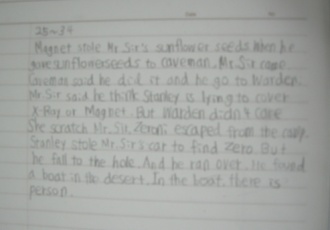 25~34
Magnet stole Mr. Sir's sunflower seeds. When he
gave sunflowerseeds to caveman, Mr. Sir came.
said he did it and he go to Warden.
Mr. Sir said he think Stanley is lying to cover
X-Ray or Magnet. But Warden didn't care.
She scratch Mr. Sir. Zeroni escaped from the camp.
Stanley stole Mr. Sir's car to find Zero. But
he fall to the hole. And he ran over. He found
a boat in the desert. In the boat, there is
person.